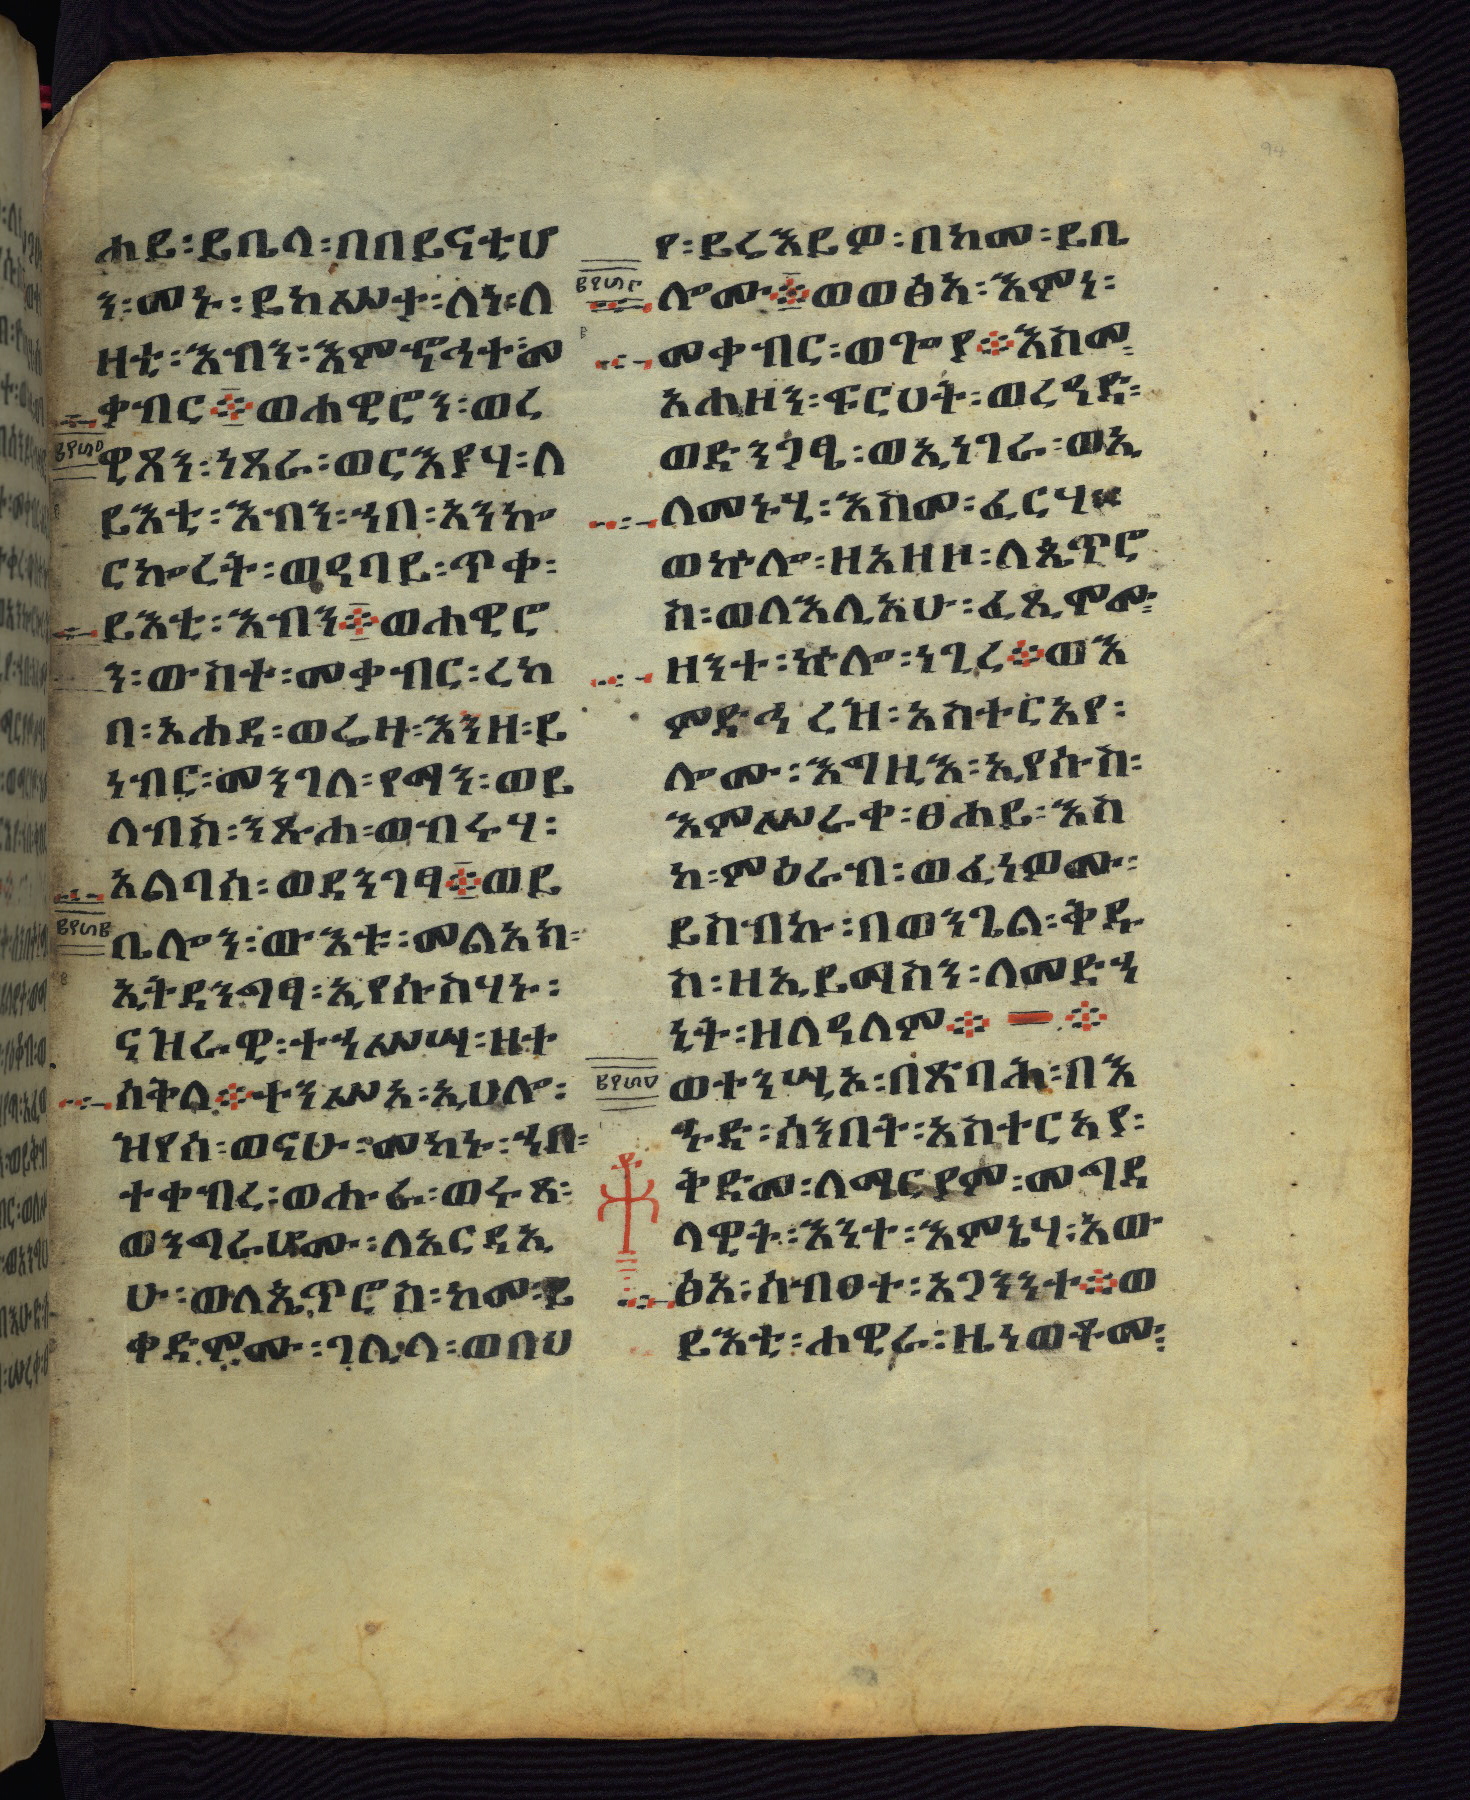 ሐይ፡ይቤላ፡በበይናቲሆ
ን፡መኑ፡ይከሥት፡ለነ፡ለ
ዛቲ፡እብን፡እምኆኅተ፡መ
ቀብር፨ወሐዊሮን፡ወረ
ዊጾን፡ነጸራ፡ወርእያሃ፡ለ
ይእቲ፡እብን፡ኀበ፡አንኰ
ርኰረት፡ወዓባይ፡ጥቀ፡
ይእቲ፡እብን፨ወሐዊሮ
ን፡ውስተ፡መቃብር፡ረከ
ባ፡አሐደ፡ወሬዛ፡እንዘ፡ይ
ነብር፡መንገለ፡የማን፡ወይ
ለብስ፡ንጹሐ፡ወብሩሃ፡
አልባሰ፡ወደንገፃ፨ወይ
ቤሎን፡ውእቱ፡መልአክ፡
ኢትደንግፃ፡ኢየሱስሃኑ፡
ናዝራዊ፡ተኀሥሣ፡ዘተ
ሰቅለ፨ተንሥአ፡ኢሀሎ፡
ዝየሰ፡ወናሁ፡መካኑ፡ኀበ፡
ተቀብረ፡ወሑራ፡ወሩጻ፡
ወንግራሆሙ፡ለአርዳኢ
ሁ፡ወለጴጥሮስ፡ከመ፡ይ
ቀድሞሙ፡ገሊላ፡ወበህ
የ፡ይሬእይዎ፡በከመ፡ይቤ
ሎሙ፨ወወፅአ፡እምነ፡
መቃብር፡ወጐያ፨እስመ፡
አሐዘን፡ፍርሀት፡ወረዓድ፡
ወድንጋፄ፡ወኢነገራ፡ወኢ
ለመኑሂ፡እስመ፡ፈርሃ፨
ወኵሎ፡ዘአዘዞ፡ለጴጥሮ
ስ፡ወለእሊአሁ፡ፈጺሞሙ፡
ዘንተ፡ኵሎ፡ነጊረ፨ወእ
ምድኅረዝ፡አስተርአየ፡
ሎሙ፡እግዚእ፡ኢየሱስ፡
እምሥራቀ፡ፀሐይ፡እስ
ከ፡ምዕራብ፡ወፈነዎሙ፡
ይስብኩ፡በወንጌል፡ቅዱ
ስ፡ዘኢይማስን፡ለመድኀ
ኒት፡ዘለዓለም፨ ፨
ወተንሢኦ፡በጽባሕ፡በእ
ሑድ፡ሰንበት፡አስተርአያ፡
ቅድመ፡ለማርያም፡መግደ
ላዊት፡እንተ፡እምኔሃ፡አው
ፅአ፡ሰብዐተ፡አጋንንተ፨ወ
ይእቲ፡ሐዊራ፡ዜነወቶሙ፡